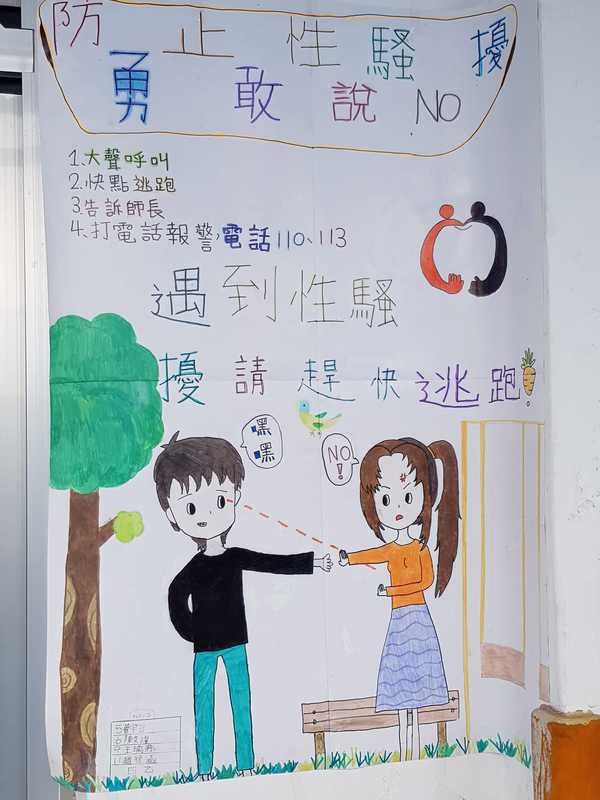 防止性騷擾
勇敢說NO
1.大聲呼叫
2.快點逃跑
3.告訴師長
4.打電話報警,電話110、113
遇到性騷
擾請趕快逃跑!
嘿
嘿
NO
!